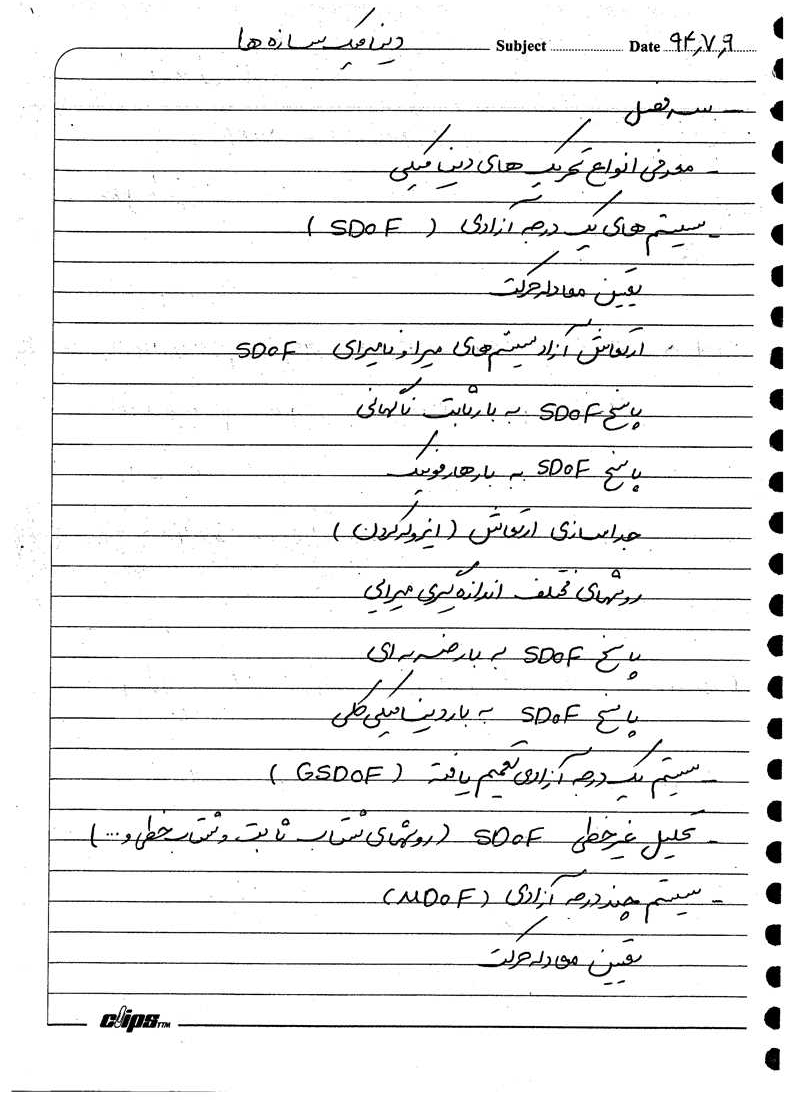 دینامیک سازه ها Subject Date ۹۴,۷,۹
- سرفصل
- معرفی انواع تحریک های دینامیکی
- سیستم های یک درجه آزادی ( SDoF )
تعیین معادله حرکت
ارتعاش آزاد سیستم های میرا و نامیرای SDoF
پاسخ SDoF به بار ثابت ناگهانی
پاسخ SDoF به بار هارمونیک
جداسازی ارتعاش ( ایزوله کردن )
روشهای مختلف اندازه گیری میرایی
پاسخ SDoF به بار ضربه ای
پاسخ SDoF به بار دینامیکی کلی
- سیستم یک درجه آزادی تعمیم یافته ( GSDoF )
- تحلیل غیرخطی SDoF ( روشهای شتاب ثابت و شتاب خطی و ... )
- سیستم چند درجه آزادی ( MDoF )
تعیین معادله حرکت
clips TM